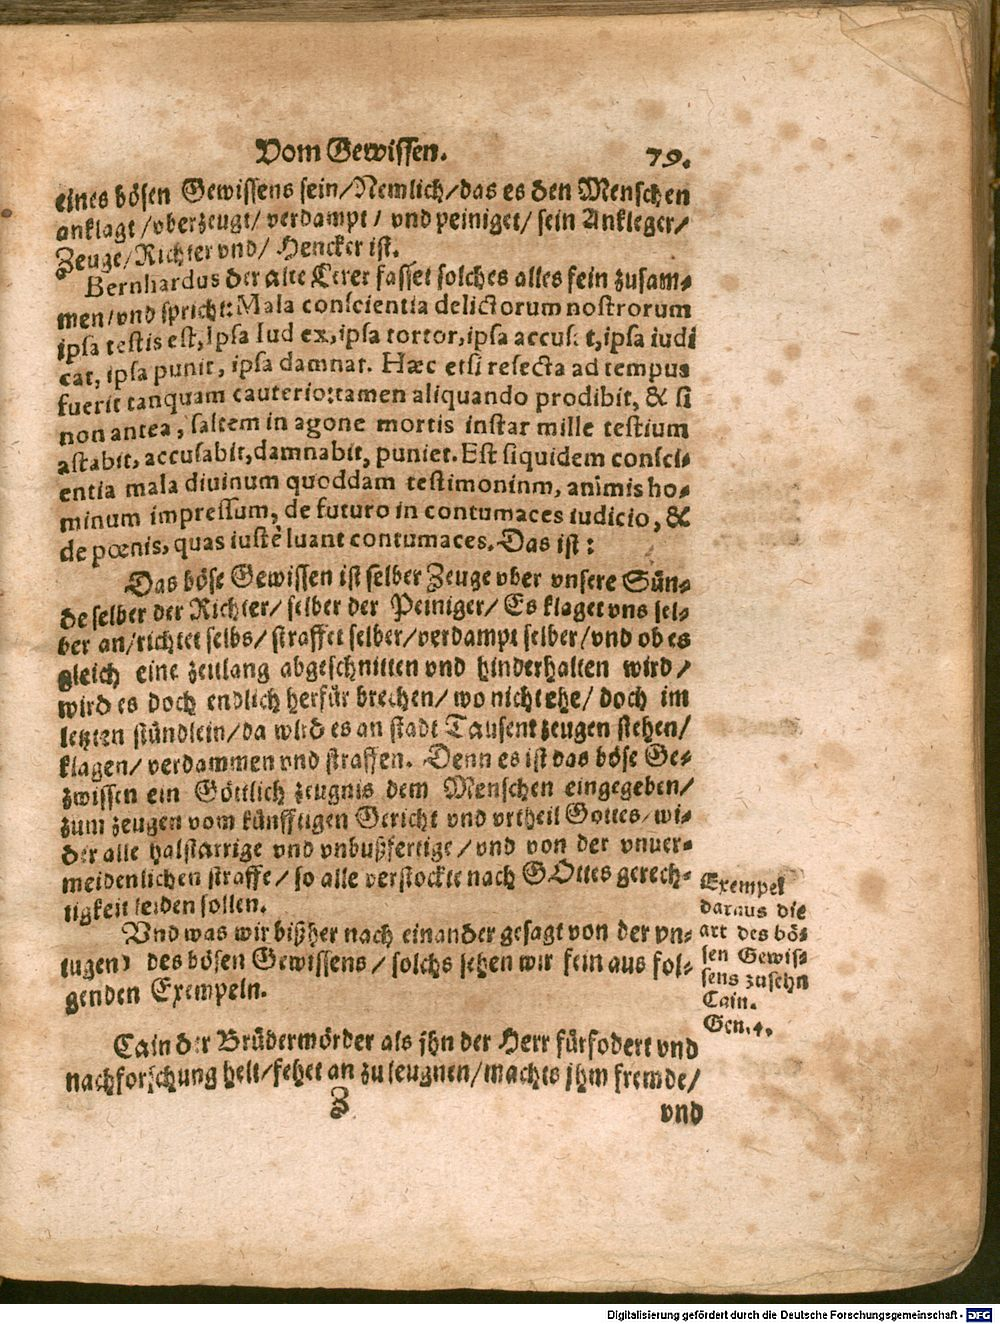 Vom Gewissen. 79.
eines bösen Gewissens sein/Nemlich/das es den Menschen
anklagt/vberzeugt/verdampt/ vnd peiniget/ sein Ankleger/
Zeuge/Richter vnd/ Hencker ist.
Bernhardus der alte Lerer fasset solches alles fein zusam⸗
men/vnd spricht: Mala conscientia delictorum nostrorum
ipsa testis est, ipsa Iud ex, ipsa tortor, ipsa accusat, ipsa iudi
cat, ipsa punit, ipsa damnat. Hæc etsi resecta ad tempus
fuerit tanquam cauterio: tamen aliquando prodibit, & si
non antea, saltem in agone mortis instar mille testium
astabit, accusabit, damnabit, puniet. Est siquidem consci⸗
entia mala diuinum quoddam testimoninm, animis ho⸗
minum impressum, de futuro in contumaces iudicio, &
de pœnis, quas iustè luant contumaces. Das ist:
Das böse Gewissen ist selber Zeuge vber vnsere Sün⸗
de selber der Richter/ selber der Peiniger/ Es klaget vns sel⸗
ber an/richtet selbs/ straffet selber/verdampt selber/vnd ob es
gleich eine zeitlang abgeschnitten vnd hinderhalten wird/
wird es doch endlich herfür brechen/ wo nicht ehe/ doch im
letzten stündlein/da wird es an stadt Tausent zeugen stehen/
klagen/ verdammen vnd straffen. Denn es ist das böse Ge⸗
zwissen ein Göttlich zeugnis dem Menschen eingegeben/
zum zeugen vom künfftigen Gericht vnd vrtheil Gottes/ wi⸗
der alle halstarrige vnd vnbußfertige/vnd von der vnuer⸗
meidenlichen straffe/ so alle verstockte nach GOttes gerech⸗
tigkeit leiden sollen.
Vnd was wir bißher nach einander gesagt von der vn⸗
tugend des bösen Gewissens/ solchs sehen wir fein aus fol⸗
genden Exempeln.
Exempel
daraus die
art des bö⸗
sen Gewis⸗
sens zusehn
Cain.
Gen. 4.
Cain der Brüdermörder als jhn der Herr fürfodert vnd
nachforschung helt/fehet an zu leugnen/machts jhm fremde/
Z vnd
Digitalisierung gefördert durch die Deutsche Forschungsgemeinschaft - DFG